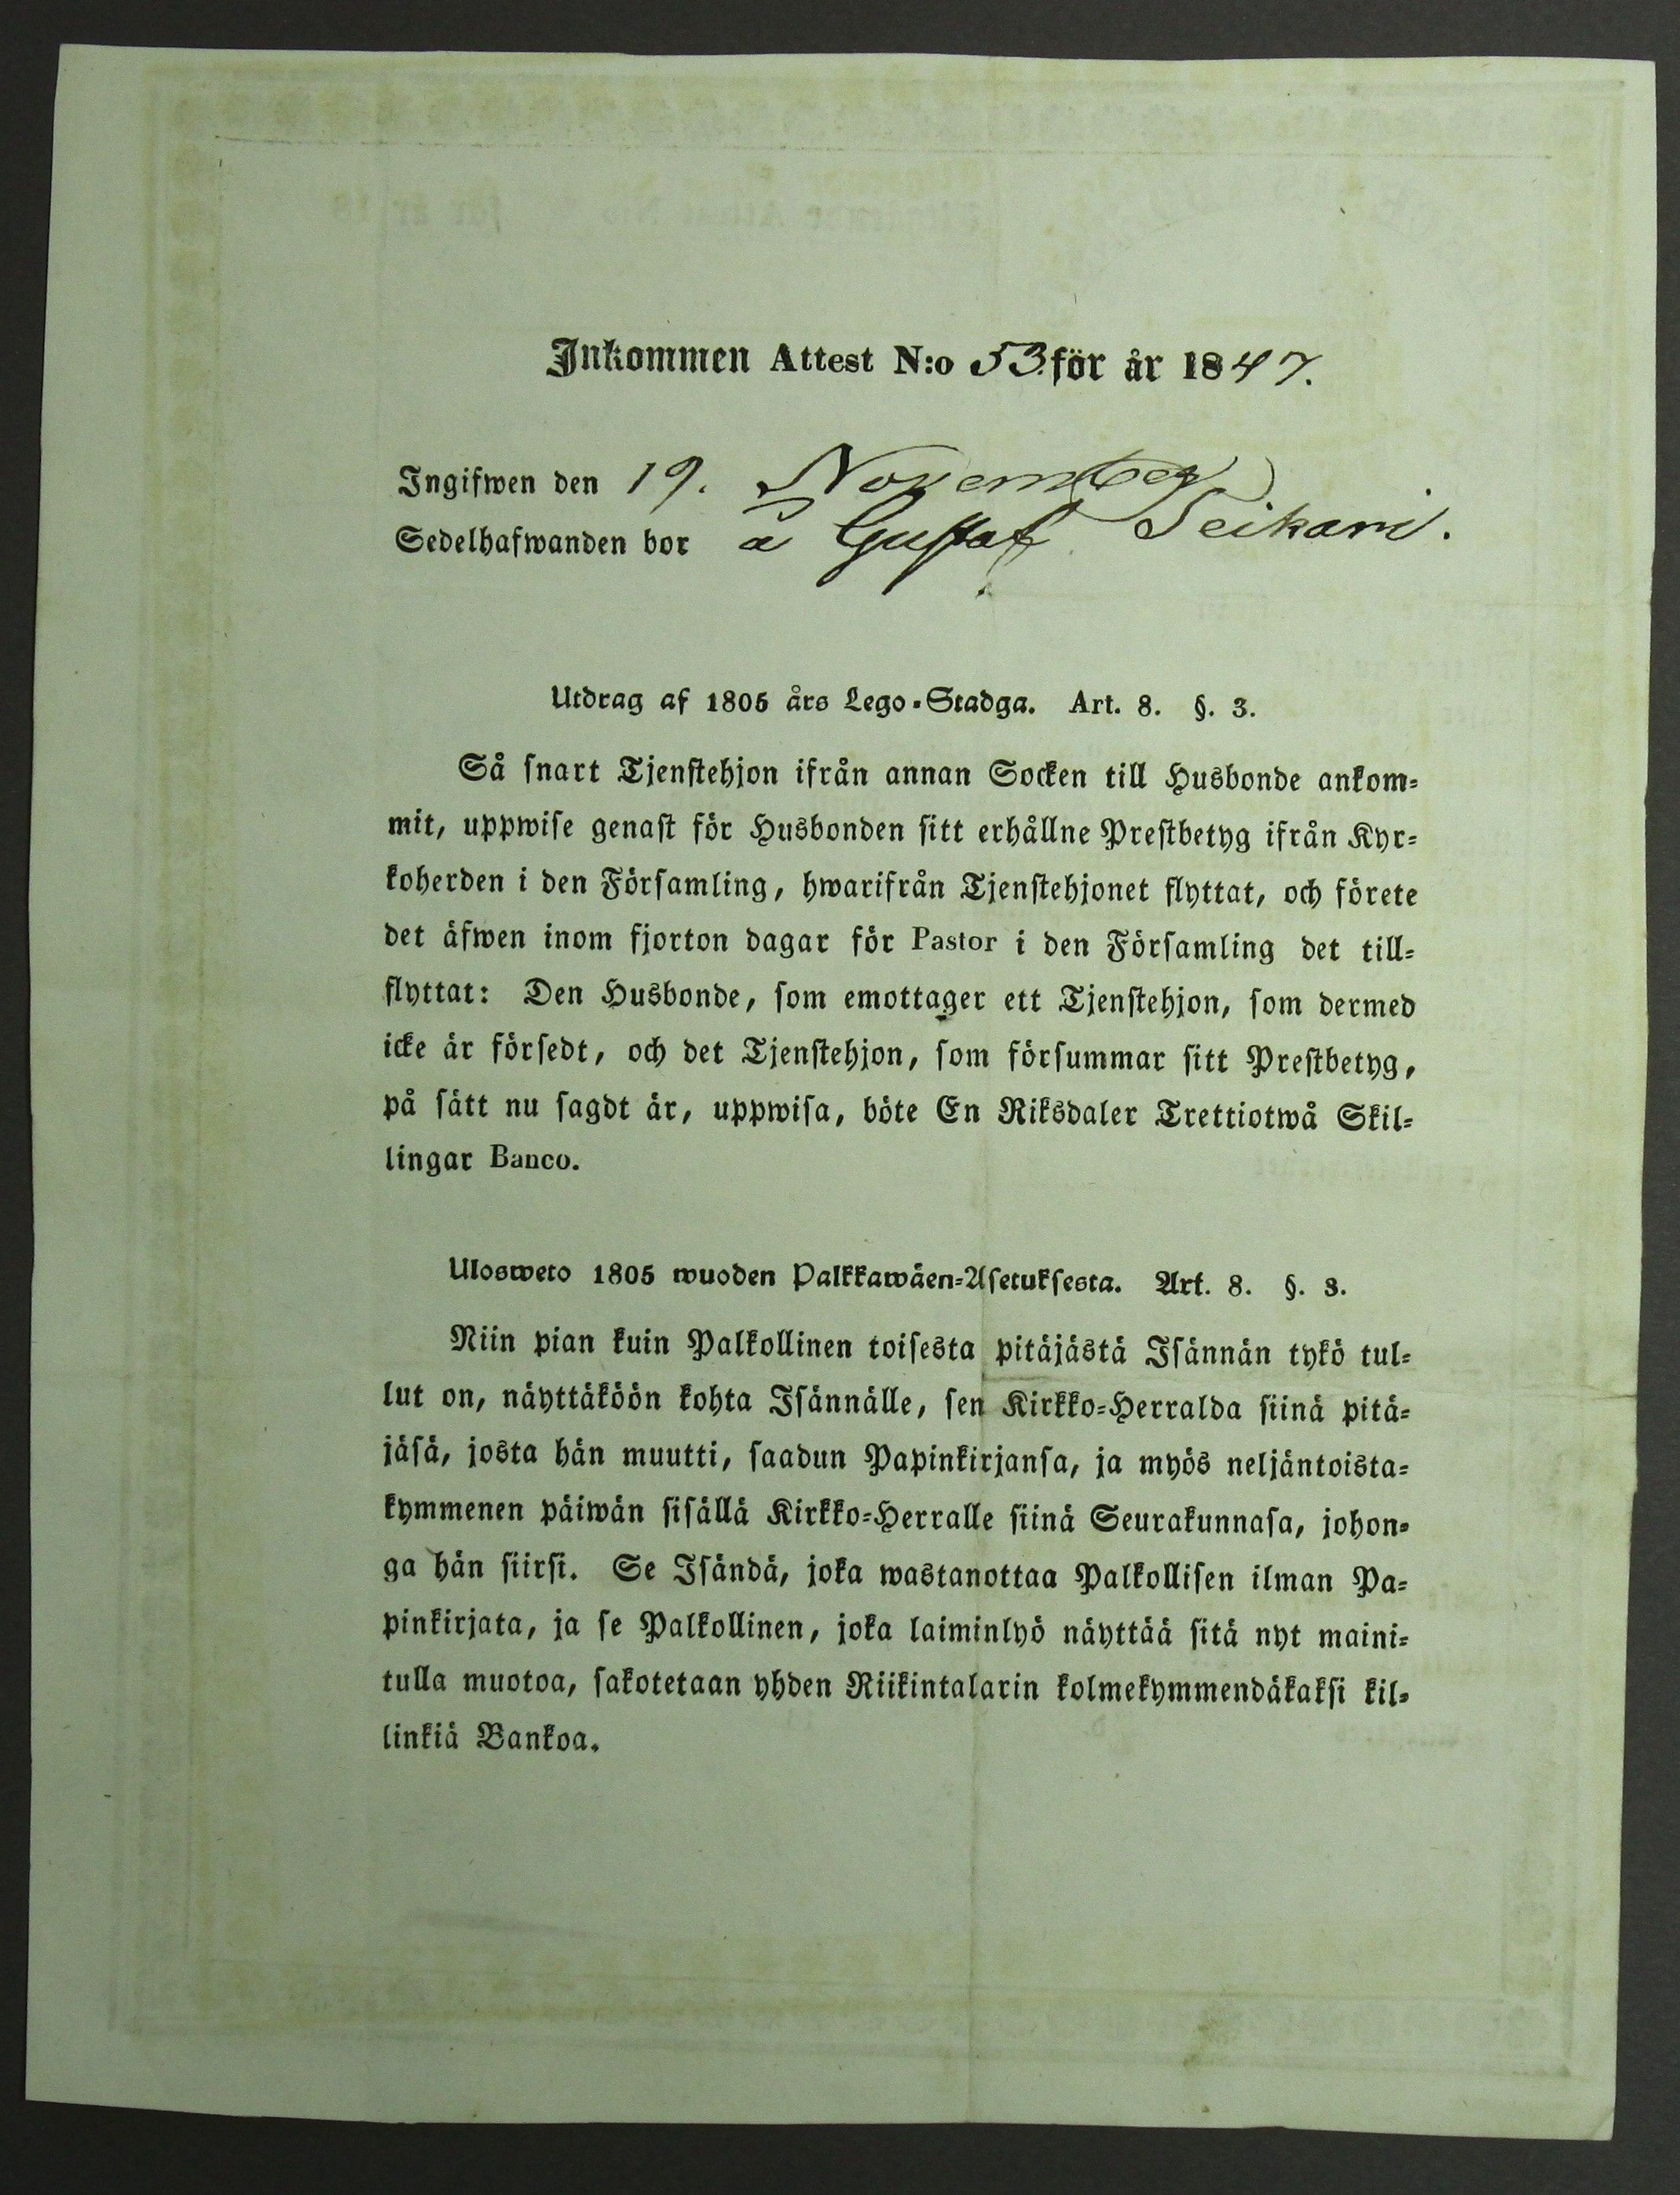 Inkommen Attest N:o 53. för år 1847.
Ingifwen den 19. November
Sedelhafwanden bor å Gustaf Seikari.
Utdrag af 1805 års Lego-Stadga. Art. 8. §. 3.
Så snart Tjenstehjon ifrån annan Socken till Husbonde ankom-
mit, uppwise genast för Husbonden sitt erhållne Prestbetyg ifrån Kyr-
koherden i den Församling, hwarifrån Tjenstehjonet flyttat, och förete
det äfwen inom fjorton dagar för Pastor i den Församling det till-
flyttat: Den Husbonde, som emottager ett Tjenstehjon, som dermed
icke är försedt, och det Tjenstehjon, som försummar sitt Prestbetyg,
på sätt nu sagdt är, uppwisa, böte En Riksdaler Trettiotwå Skil-
lingar Banco.
Ulosweto 1805 wuoden Palkkawäen-Asetuksesta. Art. 8. §. 3.
Niin pian kuin Palkollinen toisesta pitäjästä Isännän tykö tul-
lut on, näyttäköön kohta Isännälle, sen Kirkko-Herralda siinä pitä-
jäsä, josta hän muutti, saadun Papinkirjansa, ja myös neljäntoista-
kymmenen päiwän sisällä Kirkko-Herralle siinä Seurakunnasa, johon-
ga hän siirsi. Se Isändä, joka wastanottaa Palkollisen ilman Pa-
pinkirjata, ja se Palkollinen, joka laiminlyö näyttää sitä nyt maini-
tulla muotoa, sakotetaan yhden Riikintalarin kolmekymmendäkaksi kil-
linkiä Bankoa.